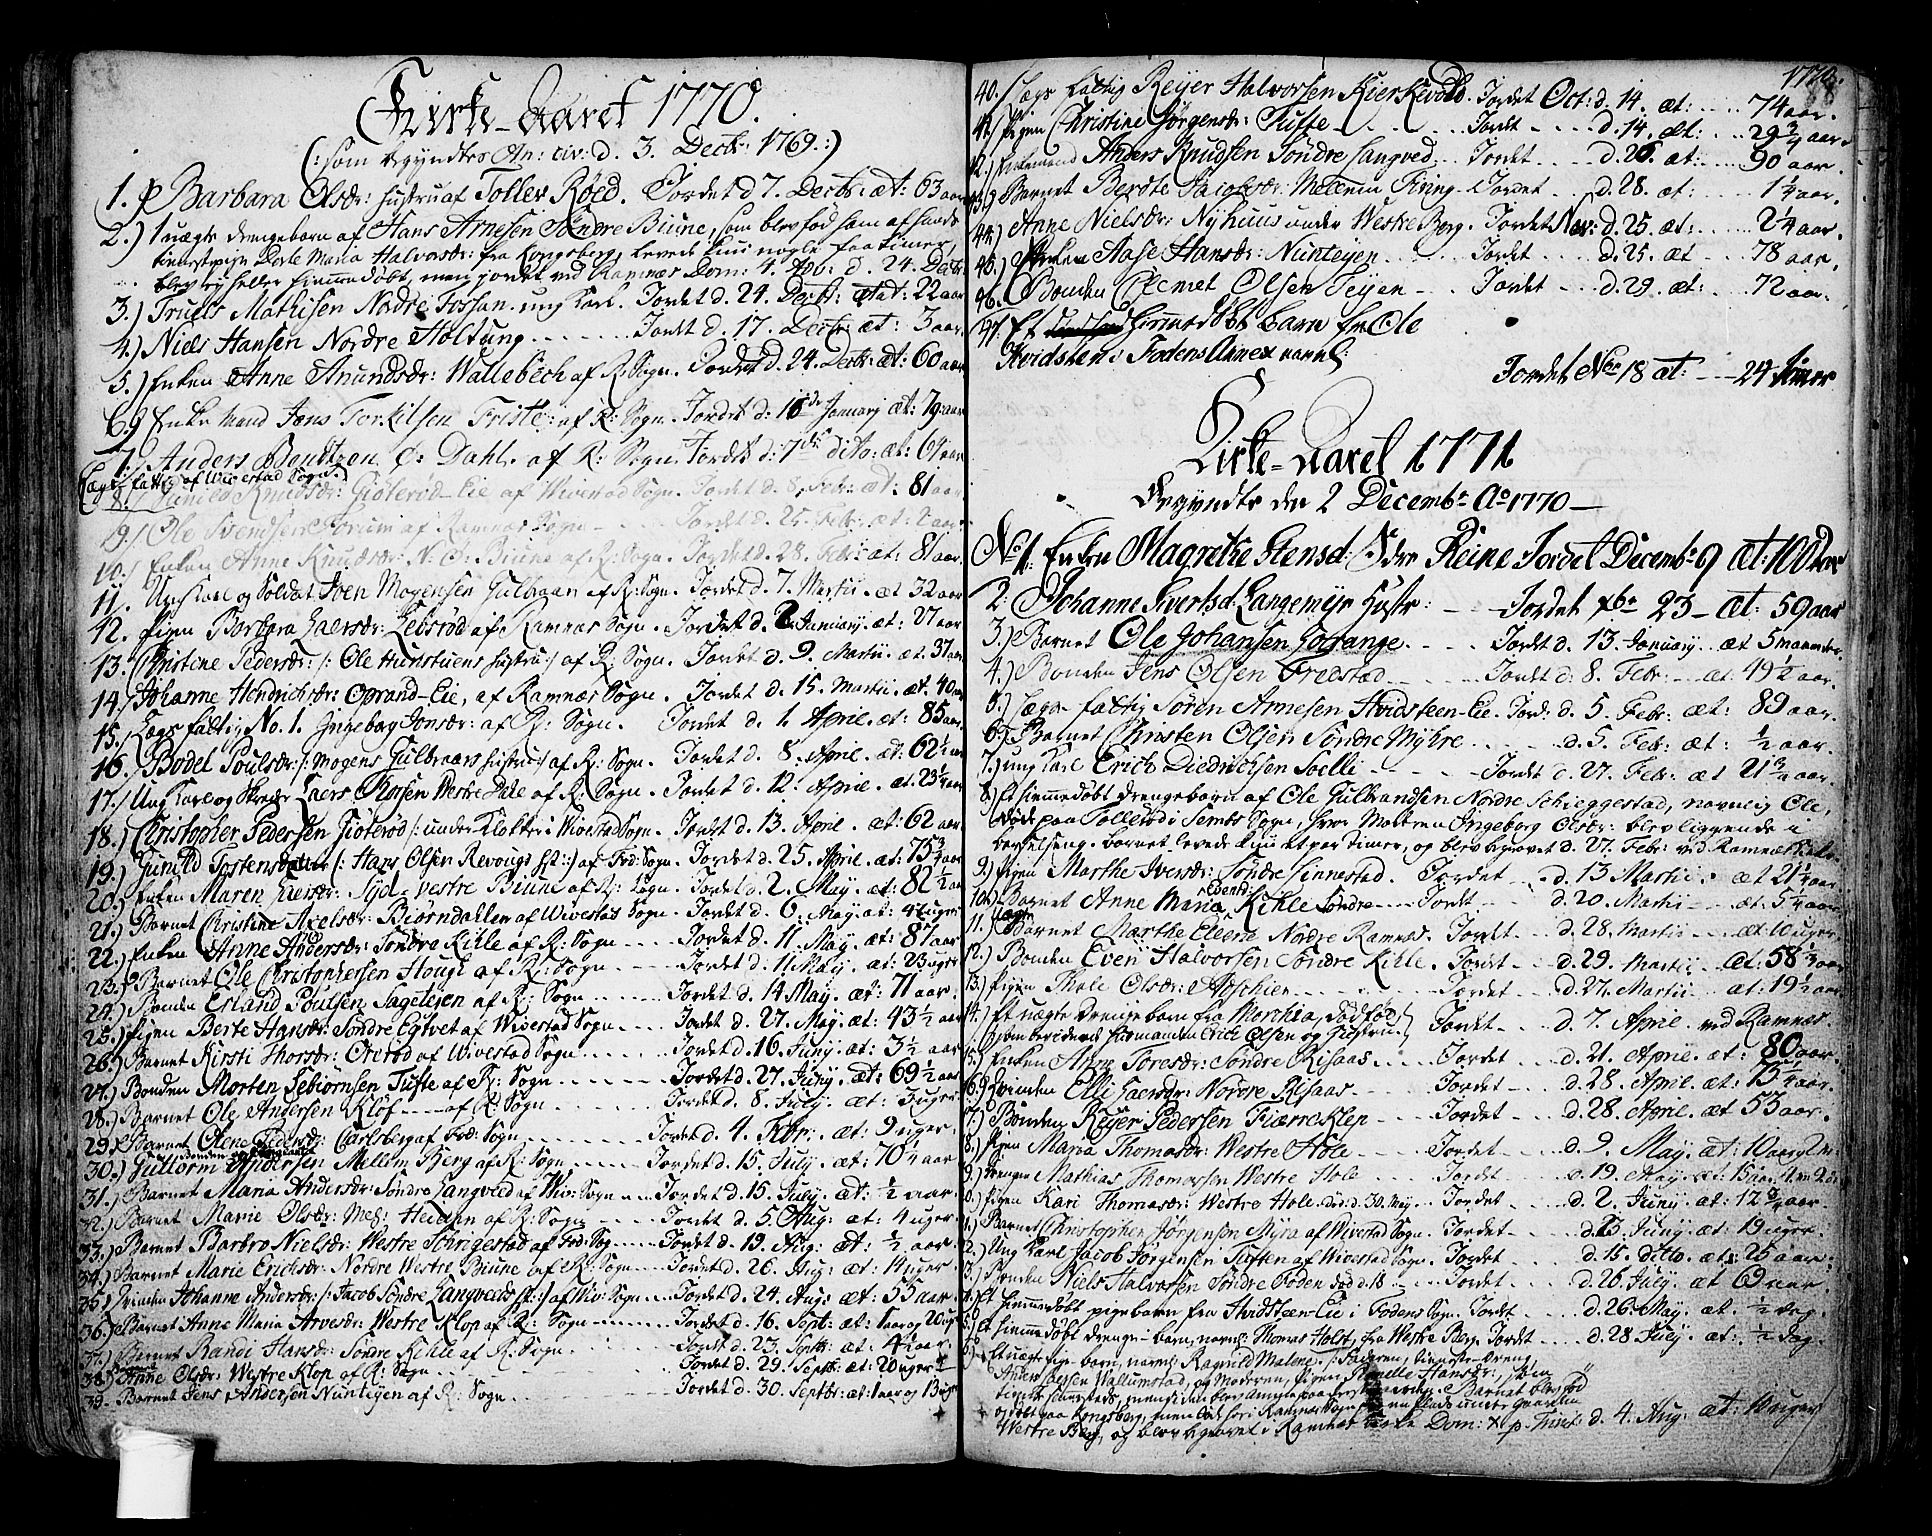 Kirke-Aaret 1770.
(: som begyndtes An: civ: d. 3. Decbr: 1769.:)
1. Barbara Olsdr: Hustru af Tollev Röed. Jordet d 7. Decbr: æt: 63 aar
2.) 1 uægte drengebarn af Hans Arnesen Söndre Biune, som blev fød som af hands
tienestepige Dorte Maria Halvorsdr: fra Kongsberg, levede kun nogle faa timer,
blev ey heller hiemmedöbt, men jordet ved Ramnæs Dom: 4. Adv: d. 24. Decbr:
3.) Truels Mathisen Nordre Fossan. ung Karl. Jordet d. 24. Decbr: ætat: 22 aar
4.) Niels Hansen Nordre Holtung. Jordet d. 17. Decbr: æt: 3 aar.
5.) Enken Anne Anundsdr: Wallebech af R: Sogn. Jordet d. 24. Decbr: æt: 60 aar
6.) Enke Mand Jens Torkilsen Friste: af R: Sogn. Jordet d: 16de Januarj æt: 79: aar
7. Anders Bentzen Ö: Dahl. af R: Sogn. Jordet d: 7de dito: æt: 64 aar
Lægs-fattig af Wivestad Sogn
8. Gunild Knudsdr: Giöteröd-Eie af Wivestad Sogn. Jordet d. 8. Febr: æt: 81 aar.
9. Ole Svendsen Forum af Ramnæs Sogn. Jordet d. 25. Febr: æt: 2 aar.
10. Enken Anne Knudsdr: N. Ö. Biune af R: Sogn. Jordet d. 28. Febr: æt: 81 aar.
11. Ung Karl og Soldat Iven Mogensen Gulbraan af R: Sogn. Jordet d. 7. Martii. æt 32 aar
12. Pigen Barbara Laersdr: Lebsröd af Ramnæs Sogn. Jordet d. 2. January. æt: 27 aar
13. Christene Pedersdr: /: Ole Hunstuens Hustru :/ af R: Sogn. Jordet d. 9. Martii. æt. 37 aar
14. Johanne Hendrichsdr: Oprand-Eie, af Ramnæs Sogn. Jordet d. 15. Martii. æt. 40 aar
15. Lægs fattig No. 1. Ingeborg Jonsdr: af R: Sogn. Jordet d. 1. April. æt: 85 aar.
16. Bodel Poulsdr: /: Mogens Gulbraans Hustru :/ af R: Sogn. Jordet d. 8. April. æt: 62 1/2 aar
17. Ung Karl og Skræder Laers Thorsen Westre Dele af R: Sogn. Jordet d. 12. April. æt: 23 1/4 aar
18.) Christopher Pedersen Giöteröd /: under Klokker i Wivestad Sogn. Jordet d. 13. April. æt: 62 aar
19.) Gunild Torstensdatter (: Hans Olsen Revougs H: :) af Fod: Sogn. Jordet d. 25. April. æt: 75 3/4 aar
20.) Enken Maren Laersdr: Syd-vestre Biune af R: Sogn. Jordet d. 2. May. æt: 82 1/2 aar
21.) Barnet Christine Axelsdr: Biörndallen af Wivestad Sogn. Jordet d. 6. May. æt: 4 uger
22.) Enken Anne Andersdr: Söndre Kihle af R: Sogn. Jordet d. 11 May. æt: 87 aar
23.) Barnet Ole Christophersen Hougt af R: Sogn. Jordet d. 11 May. æt: 23 uger
24.) Bonden Erland Poulsen Sageteyen af R: Sogn. Jordet d. 14 May. æt: 71 aar.
25.) Pigen Berte Hansdr: Söndre Egtvet af Wivestad Sogn. Jordet d. 27. May. æt: 43 1/2 aar
26.) Barnet Kirsti Thorsdr: Oreröd af Wivestad Sogn. Jordet d. 16. Juny. æt: 3 1/2 aar
27.) Bonden Morten Lebiörnsen Tufte af R: Sogn. Jordet d. 27. Juny. æt: 69 1/2 aar
28.) Barnet Ole Andersen Klöf af R: Sogn. Jordet d. 8. July. æt: 3 uger
29. Barnet Olene Pedersdr: Carlsberg af Fod: Sogn. Jordet d. 4. Febr: æt: 9 uger.
30.) Guttorm Andersen Mellem Berg af R: Sogn. Jordet d. 15. July. æt: 70 1/4 aar
31.) Barnet Maria Andersdr: Söndre Langved af Wiv: Sogn. Jordet d. 15. July. æt: 1/2 aar.
32.) Barnet Marie Olsdr: Mel: Heieren af R: Sogn. Jordet d. 5. Aug: æt: 4 uger.
33.) Barnet Barbro Nielsdr: Westre Schrigestad af Fod: Sog. Jordet d. 19. Aug: æt: 1/2 aar.
34.) Barnet Marie Erichsdr: Nordre Westre Biune af R: Sogn. Jordet d. 26. Aug: æt: 14 uger.
35. Qvinden Johanne Andersdr: /: Jacob Söndre Langveds H: :/ af Wiv: Sogn. Jordet d. 24. Aug: æt: 55 aar.
36.) Barnet Anne Maria Arvesdr: Westre Klop af R: Sogn. Jordet d. 16. Sept: æt: 1 aar og 20 uger
37.) Barnet Randi Hansdr: Söndre Kihle af R: Sogn. Jordet d. 23. Septbr: æt: 4 1/2 aar
38. Anne Olsdr: Westre Klop af R: Sogn. Jordet d. 29. Septbr: æt: 20 uger
39. Barnet Jens Andersen Nuntigen af R: Sogn. Jordet d. 30. Septbr: æt: 1 aar og 13 uger
1770.
40. Lægs fattig Reyer Halvorsen Kierkevold. Jordet Oct: d. 14. æt: 74 aar.
41. Pigen Christine Jörgensdr: Tufte. Jordet d. 14. æt: 29 3/4 aar.
42.) Enkemand Anders Knudsen Söndre Langved. Jordet d. 26. æt: 90 aar.
43.) Barnet Berdte Jacobsdr: Mellem Firing. Jordet d. 28. æt: 1 1/4 aar.
44.) Anne Nielsdr: Nyhuus under Westre Berg. Jordet Nov: d. 25. æt: 2 1/4 aar.
45.) Enken Aase Hansdr: Nunteyen. Jordet d. 25. æt 78 aar.
46. Bonden Clemet Olsen Teyen. Jordet d. 29. æt: 72 aar.
47. Et hiemmedöbt barn fra Ole
Hvidsteen i Fodens Annex navnl:
Jordet Nbr. 18 æt: 24 timer
Kirke-Aaret 1771
begyndte den 2 Decembr. Ao. 1770
No. 1. Enken Magrethe Stensd: Reine Jordet Decembr. 9 æt: 100 aar
2. Johanne Sivertsd. Langemyr Hustr: Jordet Xbr. 23 æt: 59 aar
3.) Barnet Ole Johansen Gorange. Jordet d. 13. January. æt 5 maaneder.
4.) Bonden Jens Olsen Frestad. Jordet d. 8. Febr: æt 49 1/2 aar.
5.) Lægs-fattig Sören Arnesen Hvidsteen-Eie. Jord: d. 5. Febr: æt: 89 aar.
6.) Barnet Christen Olsen Söndre Myhre. d. 5. Febr: æt: 1/2 aar.
7.) ung Karl Erich Diedrichsen Solli. Jordet d. 27. Febr: æt 21 3/4 aar.
8.) Et hiemmedöbt drengebarn af Ole Gulbrandsen Nordre Schieggestad, navnlig Ole,
föd paa Tolleröd i Sembs Sogn, hvor Moderen Ingeborg Olsdr: blev liggende i
barselseng. barnet levede kun et par timer, og blev begravet d. 27. Febr: ved Ramnæs Kirke
9.) Pigen Marthe Iversdr: Söndre Linnestad. Jordet d. 13 Martii. æt 21 1/4 aar.
10.) Barnet Anne Maria Kihle Söndre. Jordet d. 20. Martii æt: 5 1/4 aar
11.) uægte Barnet Marthe Eleene Nordre Ramnæs. Jordet d. 28. Martii æt 10 uger
12.) Bonden Even Halvorsen Söndre Kihle. Jordet d. 29. Martii æt: 58 1/2 aar
13.) Pigen Thole Olsdr: Apschien. Jordet d. 27. Martii æt: 19 1/2 aar
14.) Et uægte Drengebarn fra Merchia, dödfød
som bevidnede Formanden Erich Olsen og Hustrue. Jordet d. 7. April. ved Ramnæs
15.) Enken Anne Toresdr: Söndre Risaas. Jordet d. 21. April. æt: 80 aar.
16.) Qvinden Elli Laersdr: Nordre Risaas. Jordet d. 28. April. æt: 75 1/4 aar.
17.) Bonden Reyer Pedersen Fiærreklep. Jordet d. 28. April. æt 53 aar.
18.) Pigen Maria Thomasdr: Westre Hole. Jordet d. 9. May. æt: 10 aar
19.) Drengen Mathias Thomassen Westre Hole. Jordet d. 19. May. æt 15 aar
20.) Pigen Kari Thomasdr: Westre Hole. död: d. 30. May. Jordet d. 2. Juny. æt: 12 3/4 aar.
21.) Barnet Christopher Jörgensen Myra af Wivestad Sogn. Jordet d. 23 Juny. æt: 19 uger.
22.) Ung Karl Jacob Jörgensen Tuften af Wivestad Sogn. Jordet d. 15. ditto. æt: 25 aar.
23.) Bonden Niels Halvorsen Söndre Foden död d. 18. Jordet d. 26. July. æt 69 aar.
24.) Et hiemmedöbt pigebarn fra Hvidsteen-Eie i Fodens Sogn. Jordet d. 26. May. æt: 1/2 dag.
25.) Et hiemmedöbt drenge-barn, navnl: Thomas Holst, fra Westre Berg. Jordet d. 28. July. æt: 1/2 dag.
26.) Et uægte Pige-barn, navnl: Ragnild Malene. /: Faderen, tieneste-dreng,
Anders Larsen Wallumstad, og Moderen, Pigen Pernelle Hansdr:, som
Barnet blev föd
og döbt paa Kongsberg, men död her i Ramnæs Sogn
Westre Berg, og blev begravet i Ramnæs Kirke Dom: X p. Trinit: d. 4. Aug: æt: 10 uger